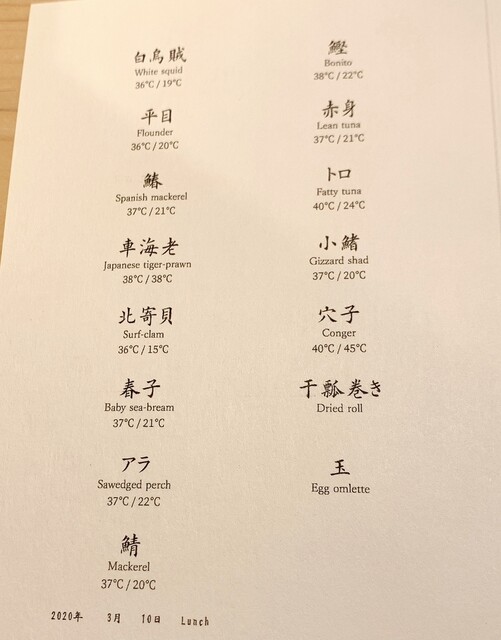 白烏賊
White squid
36℃ / 19℃
平目
Flounder
36℃ / 20℃
鰆
Spanish mackerel
37℃ / 21℃
車海老
Japanese tiger-prawn
38℃ / 38℃
北寄貝
Surf-clam
36℃ / 15℃
春子
Baby sea-bream
37℃ / 21℃
アラ
Sawedged perch
37℃ / 22℃
鯖
Mackerel
37℃ / 20℃
鰹
Bonito
38℃ / 22℃
赤身
Lean tuna
37℃ / 21℃
トロ
Fatty tuna
40℃ / 24℃
小鰭
Gizzard shad
37℃ / 20℃
穴子
Conger
40℃ / 45℃
干瓢巻き
Dried roll
玉
Egg omlette
2020年 3月 10日 Lunch